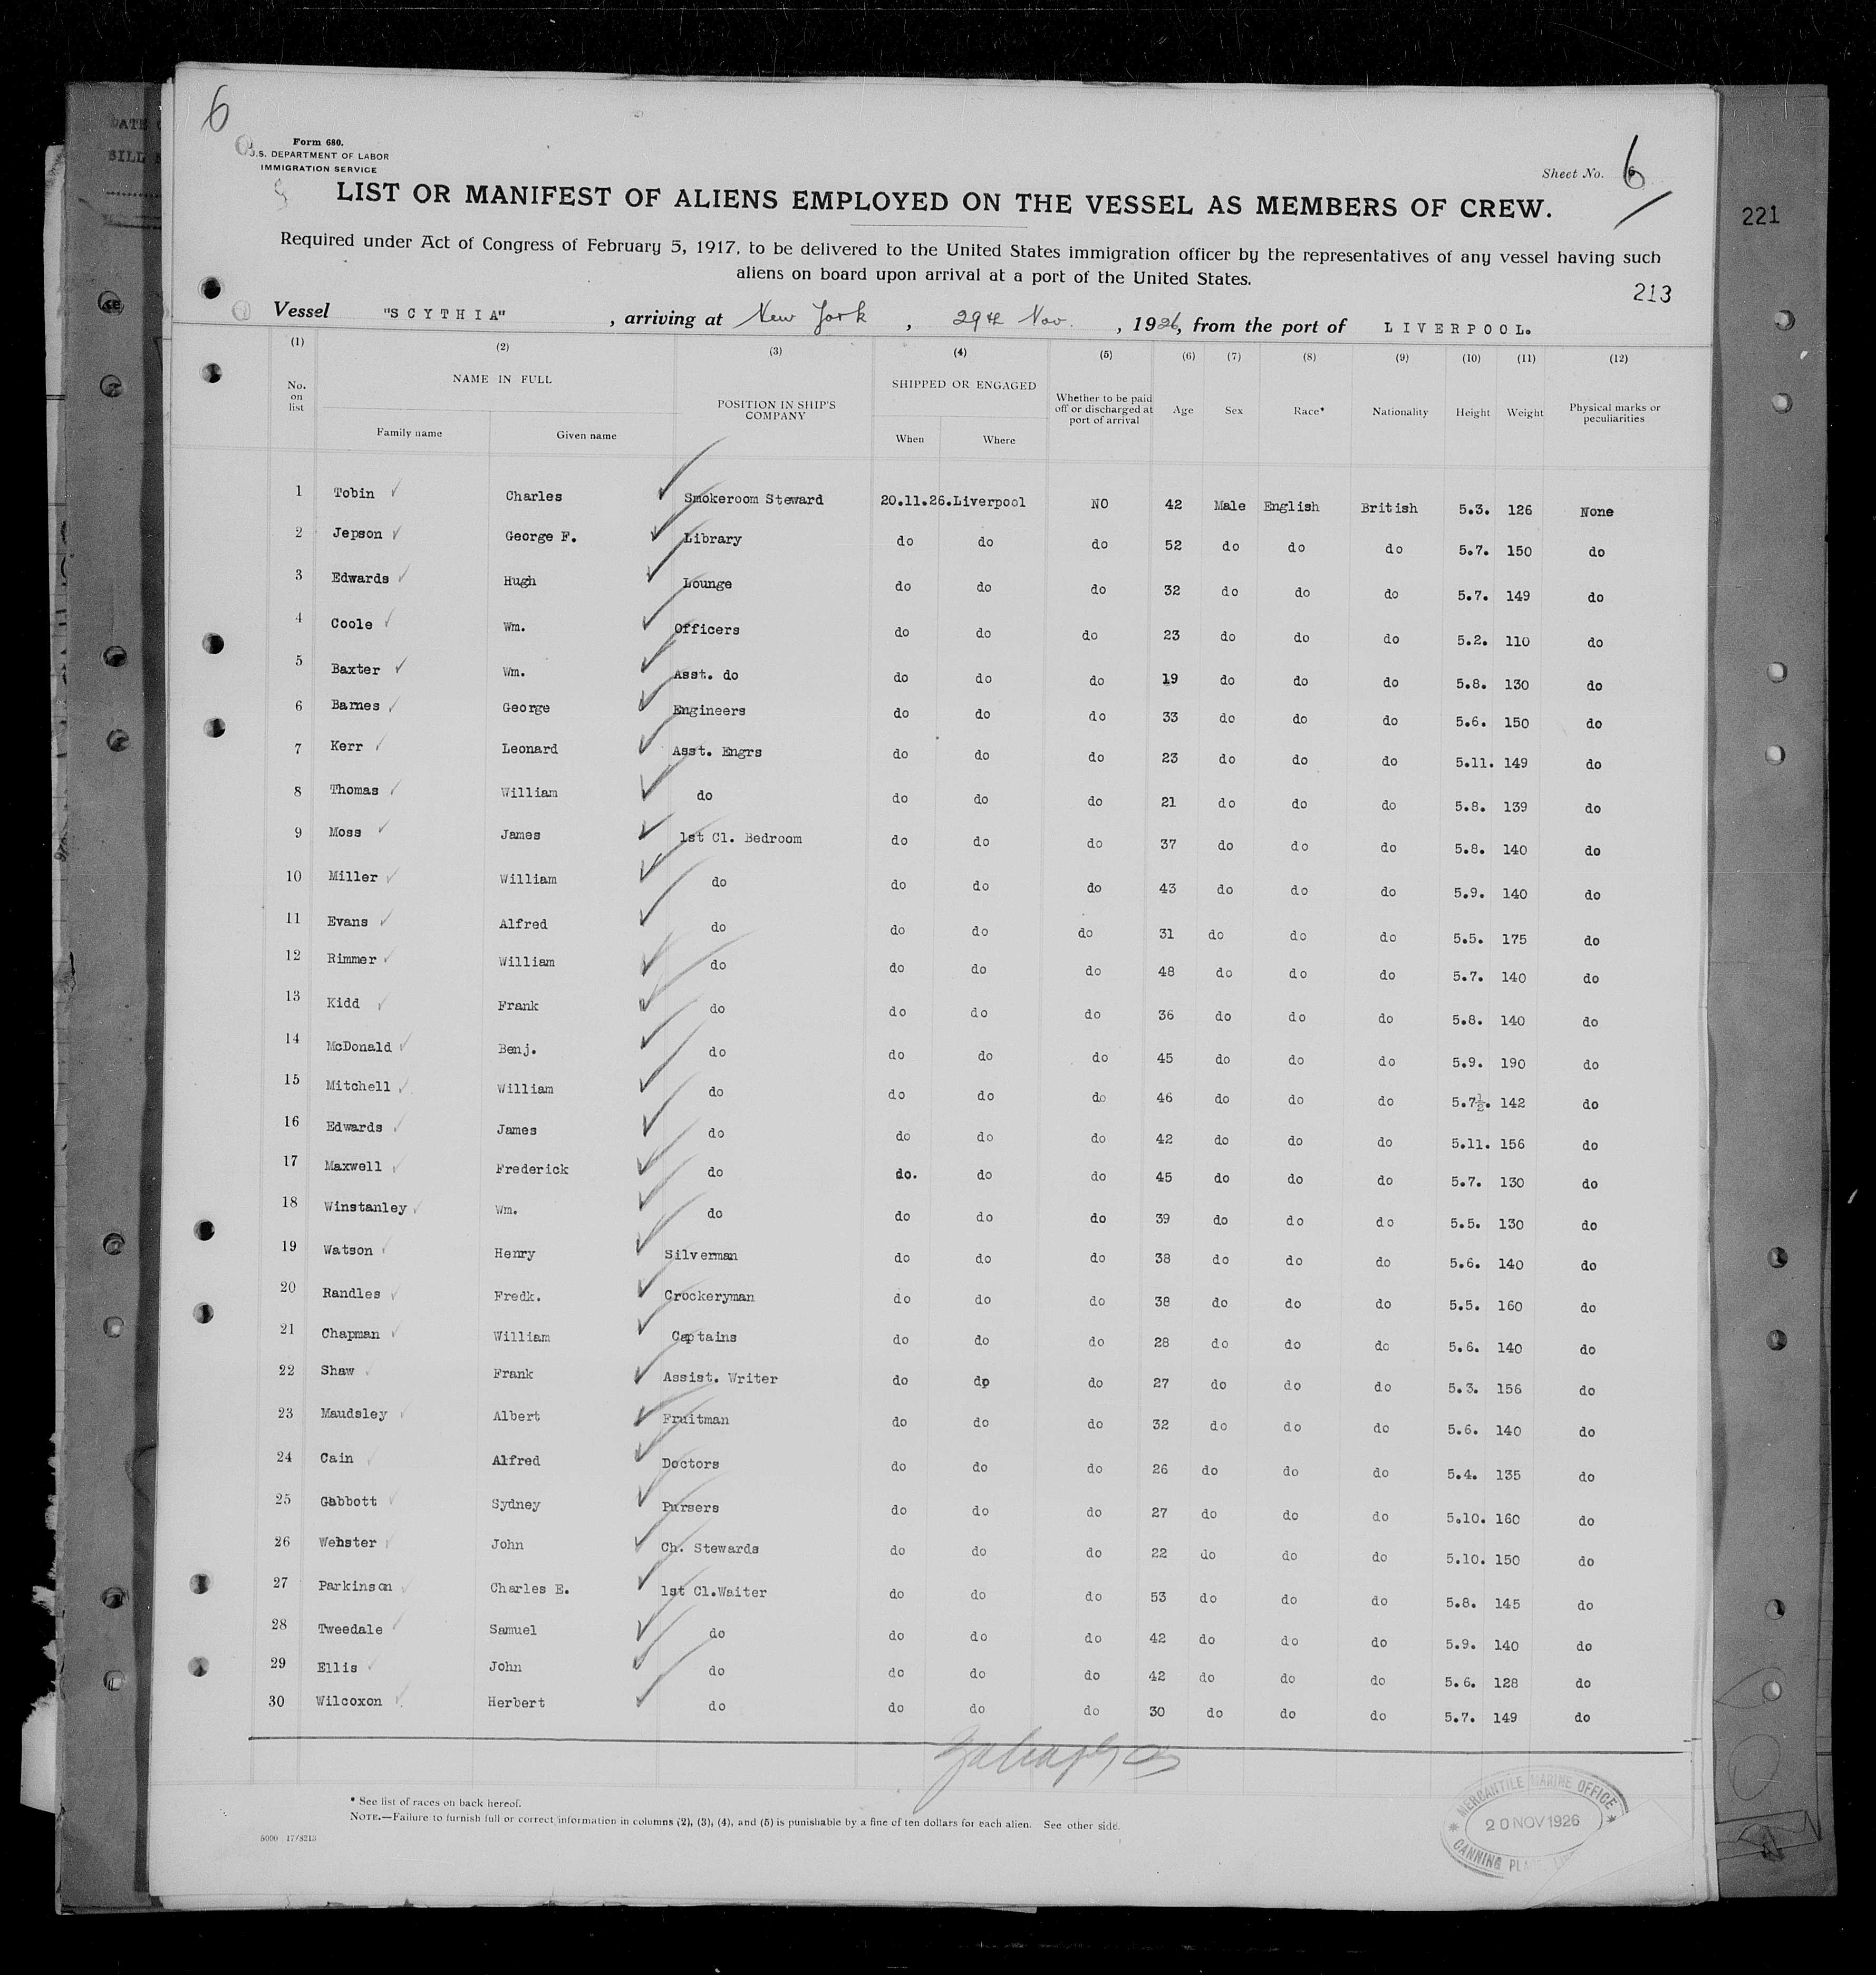 6
DATE
BILL
Form 680.
U.S. DEPARTMENT OF LABOR
IMMIGRATION SERVICE
Sheet No. 6
LIST OR MANIFEST OF ALIENS EMPLOYED ON THE VESSEL AS MEMBERS OF CREW.
221
Required under Act of Congress of February 5, 1917, to be delivered to the United States immigration officer by the representatives of any vessel having such
aliens on board upon arrival at a port of the United States.
213
Vessel "SCYTHIA", arriving at New York, 29th Nov., 1926, from the port of LIVERPOOL.
(1) (2) (3) (4) (5) (6) (7) (8) (9) (10) (11) (12)
No. on list NAME IN FULL POSITION IN SHIP'S COMPANY SHIPPED OR ENGAGED Whether to be paid off or discharged at port of arrival Age Sex Race* Nationality Height Weight Physical marks or peculiarities
Family name Given name When Where
1 Tobin Charles Smokeroom Steward 20.11.26. Liverpool NO 42 Male English British 5.3. 126 None
2 Jepson George F. Library do do do 52 do do do 5.7. 150 do
3 Edwards Hugh Lounge do do do 32 do do do 5.7. 149 do
4 Coole Wm. Officers do do do 23 do do do 5.2. 110 do
5 Baxter Wm. Asst. do do do do 19 do do do 5.8. 130 do
6 Barnes George Engineers do do do 33 do do do 5.6. 150 do
7 Kerr Leonard Asst. Engrs do do do 23 do do do 5.11. 149 do
8 Thomas William do do do do 21 do do do 5.8. 139 do
9 Moss James 1st Cl. Bedroom do do do 37 do do do 5.8. 140 do
10 Miller William do do do do 43 do do do 5.9. 140 do
11 Evans Alfred do do do do 31 do do do 5.5. 175 do
12 Rimmer William do do do do 48 do do do 5.7. 140 do
13 Kidd Frank do do do do 36 do do do 5.8. 140 do
14 McDonald Benj. do do do do 45 do do do 5.9. 190 do
15 Mitchell William do do do do 46 do do do 5.7½. 142 do
16 Edwards James do do do do 42 do do do 5.11. 156 do
17 Maxwell Frederick do do. do do 45 do do do 5.7. 130 do
18 Winstanley Wm. do do do do 39 do do do 5.5. 130 do
19 Watson Henry Silverman do do do 38 do do do 5.6. 140 do
20 Randles Fredk. Crockeryman do do do 38 do do do 5.5. 160 do
21 Chapman William Captains do do do 28 do do do 5.6. 140 do
22 Shaw Frank Assist. Writer do do do 27 do do do 5.3. 156 do
23 Maudsley Albert Fruitman do do do 32 do do do 5.6. 140 do
24 Cain Alfred Doctors do do do 26 do do do 5.4. 135 do
25 Gabbott Sydney Pursers do do do 27 do do do 5.10. 160 do
26 Webster John Ch. Stewards do do do 22 do do do 5.10. 150 do
27 Parkinson Charles E. 1st Cl.Waiter do do do 53 do do do 5.8. 145 do
28 Tweedale Samuel do do do do 42 do do do 5.9. 140 do
29 Ellis John do do do do 42 do do do 5.6. 128 do
30 Wilcoxon Herbert do do do do 30 do do do 5.7. 149 do
* See list of races on back hereof.
NOTE.—Failure to furnish full or correct information in columns (2), (3), (4), and (5) is punishable by a fine of ten dollars for each alien. See other side.
5000 17/8213
MERCANTILE MARINE OFFICE
20 NOV 1926
CANNING